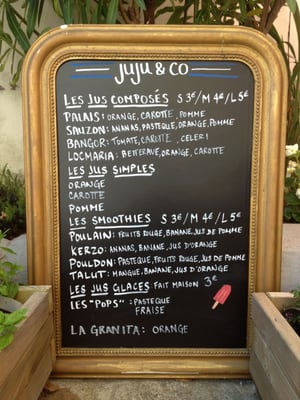 JUJU & CO
LES JUS COMPOSÉS S 3€/M 4€/L 5€
PALAIS: ORANGE, CAROTTE, POMME
SAUZON: ANANAS, PASTEQUE, ORANGE, POMME
BANGOR: TOMATE, CAROTTE, CELERI
LOCMARIA: BETTERAVE, ORANGE, CAROTTE
LES JUS SIMPLES
ORANGE
CAROTTE
POMME
LES SMOOTHIES S 3€/M 4€/L 5€
POULAIN: FRUITS ROUGE, BANANE, JUS DE POMME
KERZO: ANANAS, BANANE, JUS D'ORANGE
POULDON: PASTEQUE, FRUITS ROUGE, JUS DE POMME
TALUT: MANGUE, BANANE, JUS D'ORANGE
LES JUS GLACES: FAIT MAISON 3€
LES "POPS": PASTEQUE
FRAISE
LA GRANITA: ORANGE